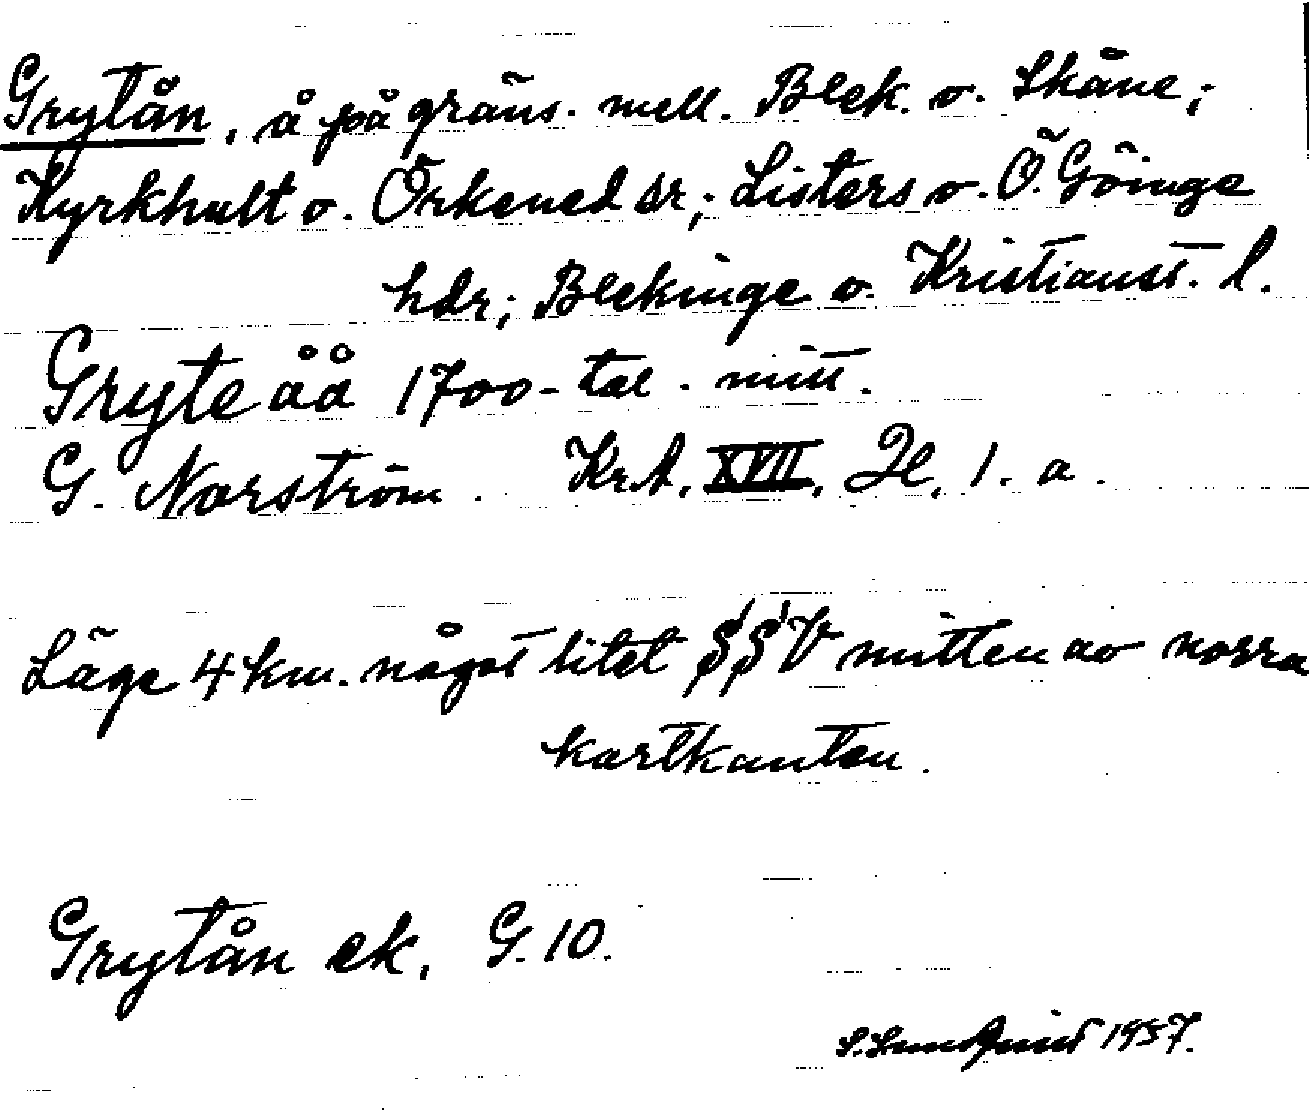 Grytån, å på gräns. mell. Blek. o. Skåne;
Kyrkhult o. Örkened sr; Listers o. Ö. Göinge
hdr; Blekinge o. Kristianst. l.
Gryteåå 1700-tal. mitt.
G. Norström. Kr.A. XVII, H, 1. a.
Läge 4 km. något litet SSV mitten av norra
kartkanten.
Grytån ek. G. 10.
S. Lundquist 1957.